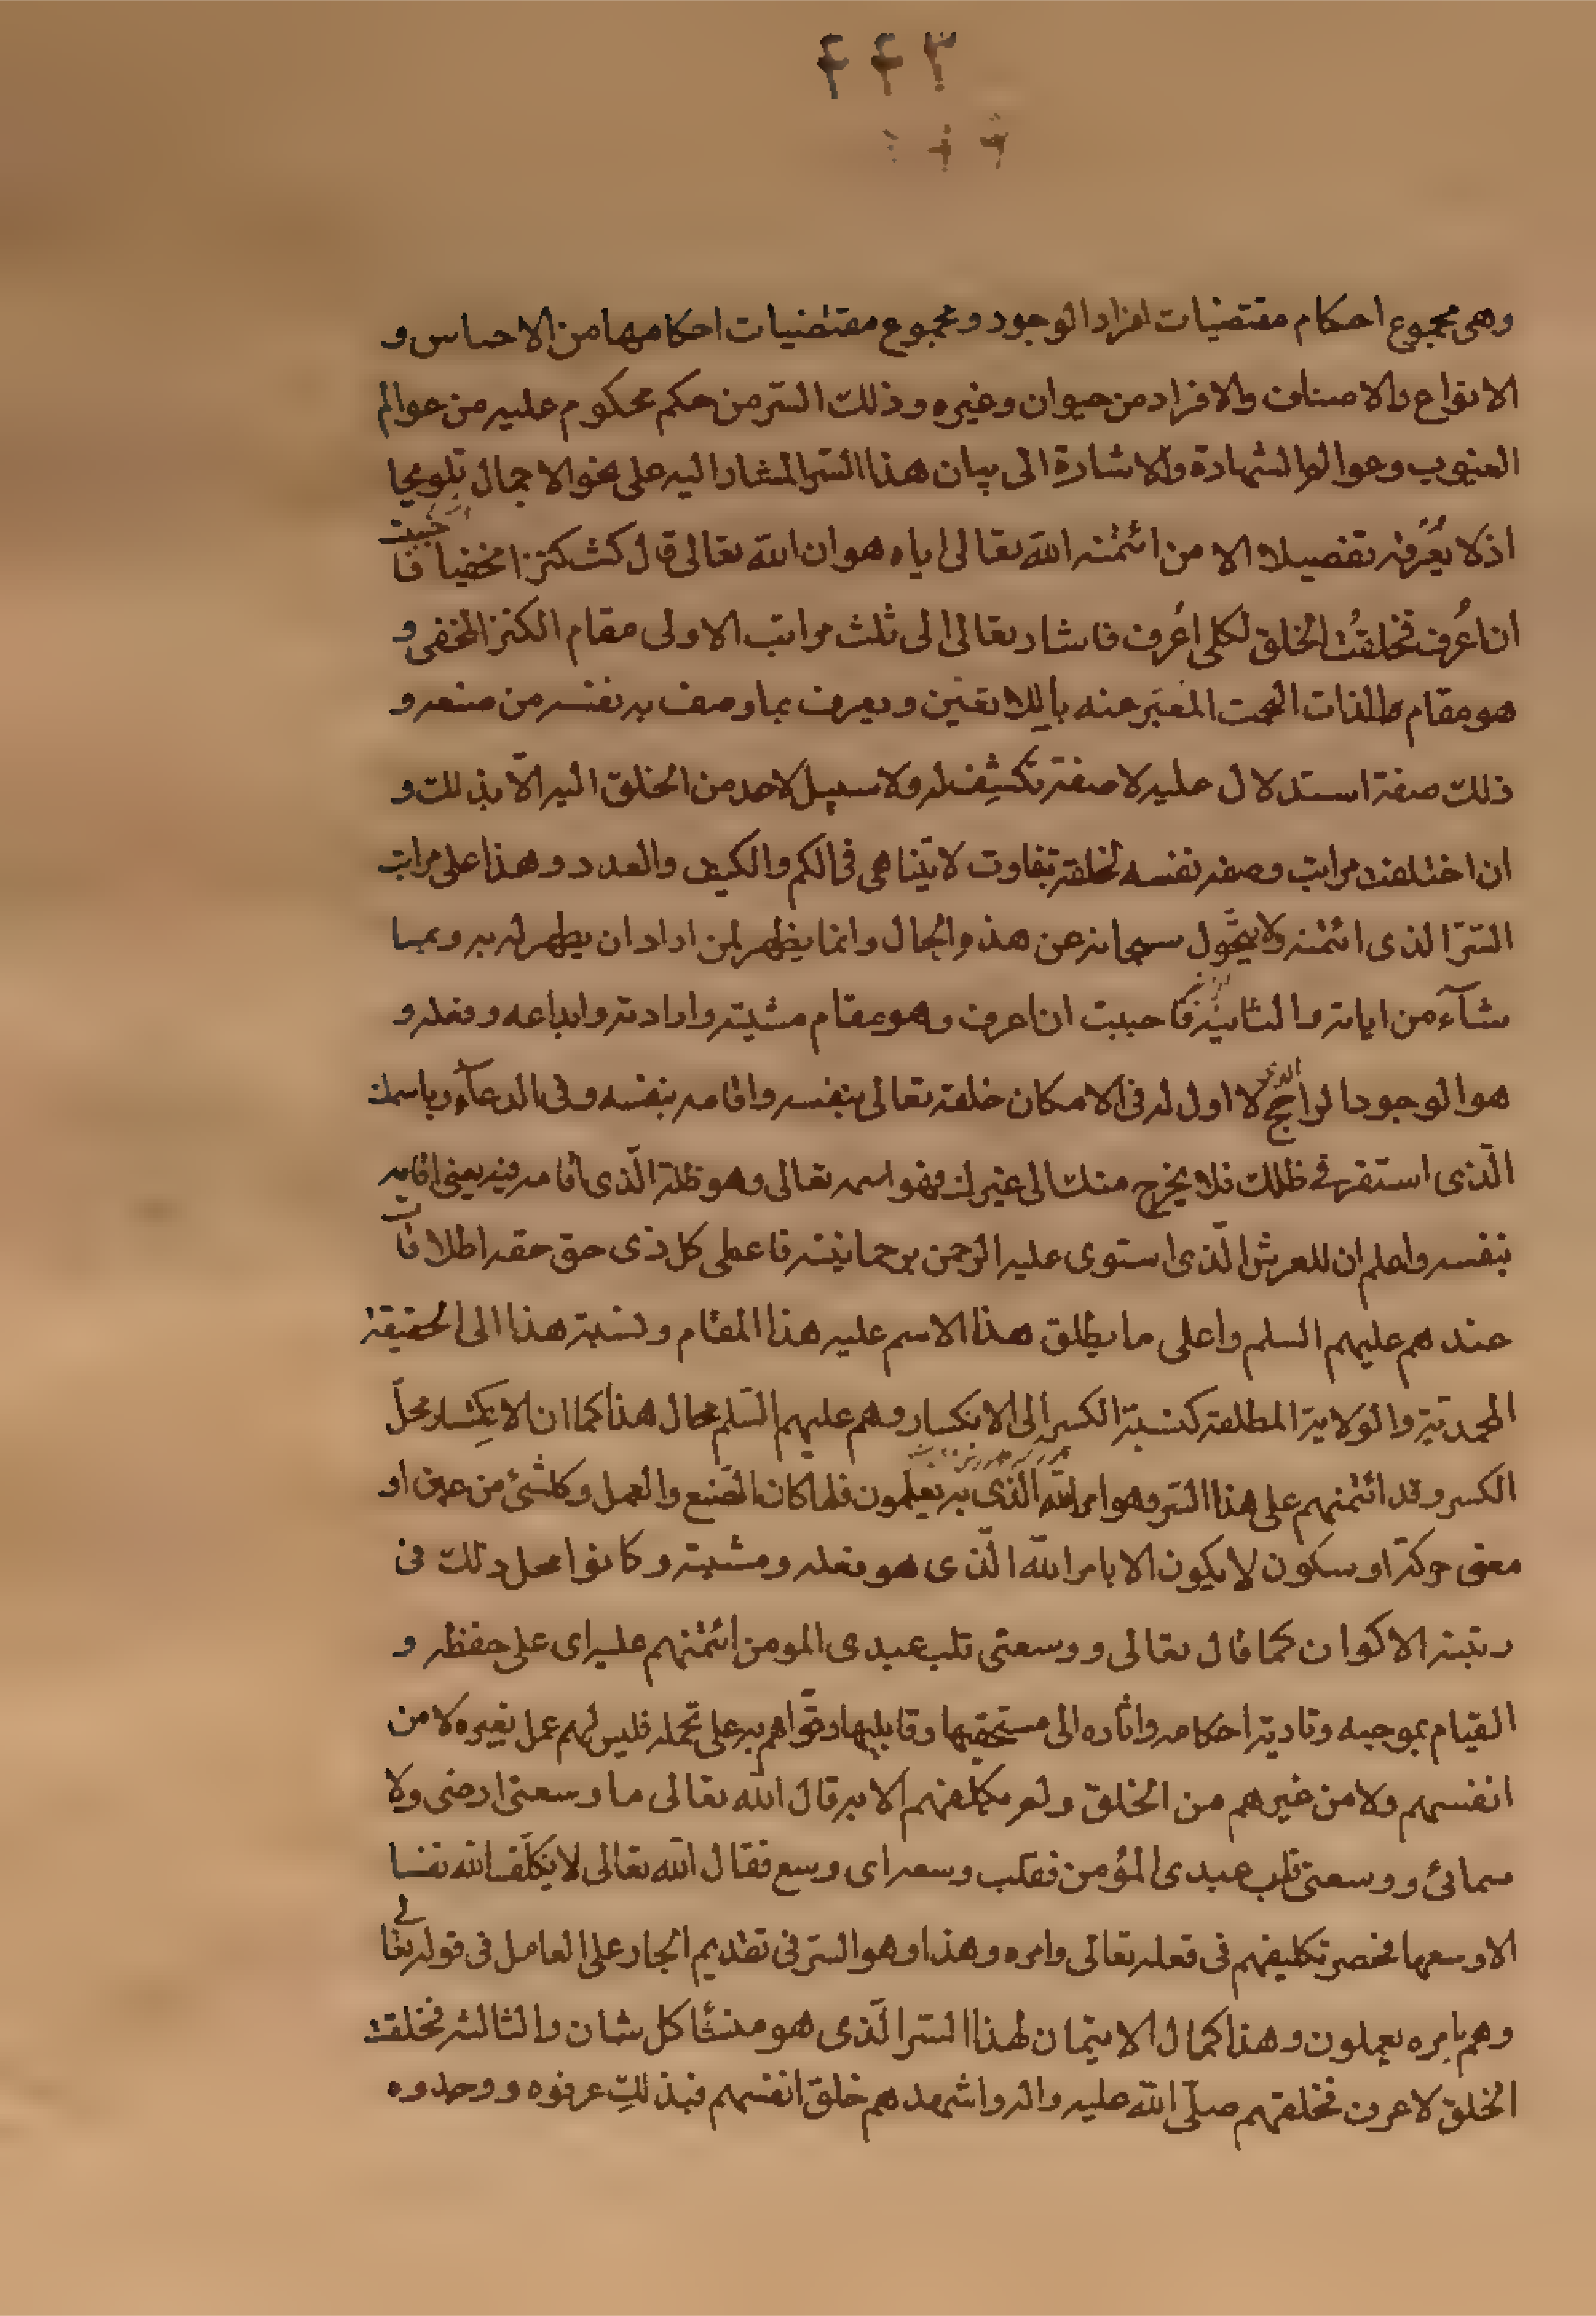 ۴۴۳
وهى مجموع احكام مقتضيات افراد الوجود و مجموع مقتضيات احكامها من الاجناس و
الانواع والاصناف والافراد من حيوان وغيره وذلك السّر من حكم محكوم عليه من عوالم
الغيوب وعوالم الشهادة والاشارة الى بيان هذا السّر المشار اليه على نحو الاجمال تلويحا
اذ لا يُعْرفه تفصيلا الا من ائتمنه اللّه تعالى اياه هو ان اللّه تعالى قال كنت كنزا مخفيا فاحببت
ان اُعرف فخلقتُ الخلق لكى اُعرف فاشار تعالى الى ثلث مراتب الاولى مقام الكنز المخفى و
هو مقام الذات البحت المعبّر عنه باللا تعيّن ويعرف بما وصف به نفسه من صنعه و
ذلك صفة استدلال عليه لا صفة تكشِف له ولا سبيل لاحد من الخلق اليه الّا بذلك و
ان اختلفت مراتب وصفه نفسه لخلقه بتفاوت لا يتناهى فى الكم والكيف والعدد وهذا على مراتب
السّرّ الذى ائتمنه ولا يتحّول سبحانه عن هذه الحال وانما يظهر لمن اراد ان يظهر له به وبما
شآء من اياته والثانية فاحببت ان اعرف وهو مقام مشيته وارادته وابداعه وفعله و
هو الوجود الراجح الذى لا اول له فى الامكان خلقه تعالى بنفسه واقامه بنفسه وفى الدعآء وباسمك
الّذى استقر فى ظلك فلا يخرج منك الى غيرك فهو اسمه تعالى وهو ظله الّذى اقامه فيه يعنى اقامه
بنفسه واعلم ان للعرش الّذى استوى عليه الرحمن برحمانيته فاعطى كل ذى حق حقه اطلاقات
عندهم عليهم السلم واعلى ما يطلق هذا الاسم عليه هذا المقام ونسبة هذا الى الحقيقة
المحمديّة والولاية المطلقة كنسبة الكسر الى الانكسار وهم عليهم السّلم محال هذا كما ان الانكِسار محلّ
الكسر وقد ائتمنهم على هذا السّر وهو امر اللّه الّذى به يعلمون فلما كان الصّنع والعمل وكلشئ من عين او
معنى حركة او سكون لا يكون الا بامر اللّه الّذى هو فعله ومشيته وكانوا محل ذلك فى
رتبة الاكوان كما قال تعالى ووسعنى قلب عبدى المومن ائتمنهم عليه اى على حفظه و
القيام بموجبه وتادية احكامه واثاره الى مستحقيها وقابليها وقوّاهم به على تحمله فليس لهم عمل بغيره لا من
انفسهم ولا من غيرهم من الخلق ولم يكلّفهم الا به قال اللّه تعالى ما وسعنى ارضى ولا
سمائى ووسعنى قلب عبدى المؤمن فقلب وسعه اى وسع فقال اللّه تعالى لا يكلّف اللّه نفسا
الا وسعها فحصر تكليفهم فى فعله تعالى وامره وهذا وهو السّر فى تقديم الجار على العامل فى قوله تعالى
وهم بامره يعملون وهذا كمال الايتمان لهذا السّر الّذى هو منشأ كل شان والثالثه فخلقت
الخلق لاعرف فخلقهم صلّى اللّه عليه واله واشهدهم خلق انفسهم فبذلك عرفوه ووحدوه